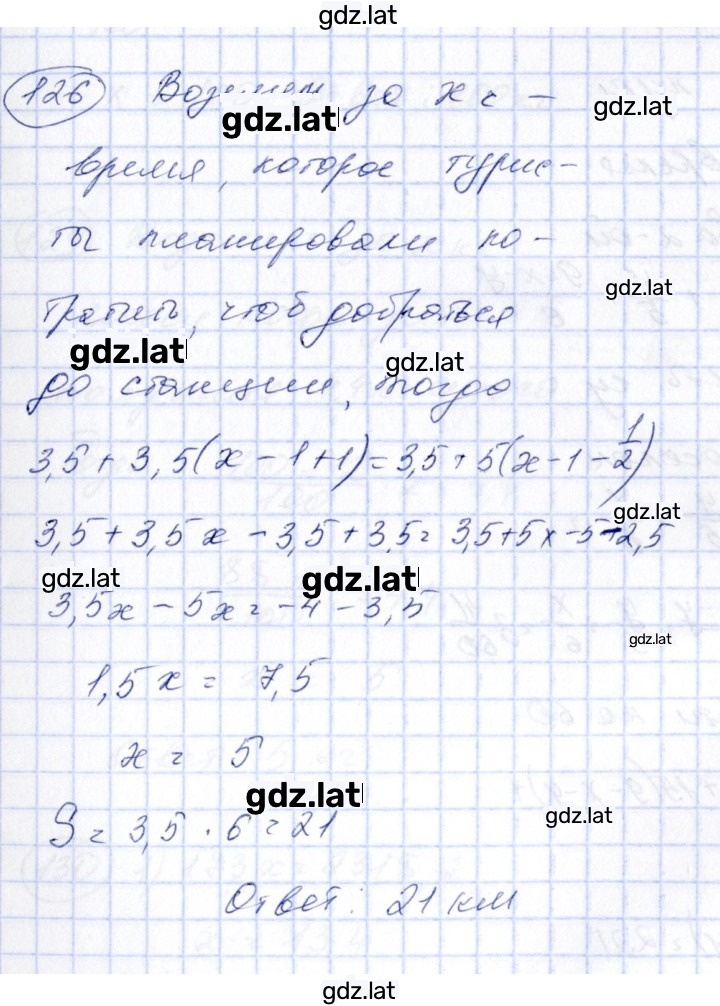 gdz.lat
126 Возьмем за x ч —
gdz.lat
gdz.lat
время, которое турис-
ты планировали по-
gdz.lat
тратить, чтоб добраться
gdz.lat
gdz.lat
до станции, тогда
3,5 + 3,5(x - 1 + 1) = 3,5 + 5(x - 1 - 1/2)
gdz.lat
3,5 + 3,5x - 3,5 + 3,5 = 3,5 + 5x - 5 - 2,5
gdz.lat
gdz.lat
3,5x - 5x = -4 - 3,5
gdz.lat
1,5x = 7,5
x = 5
gdz.lat
gdz.lat
S = 3,5 · 6 = 21
Ответ: 21 км
gdz.lat